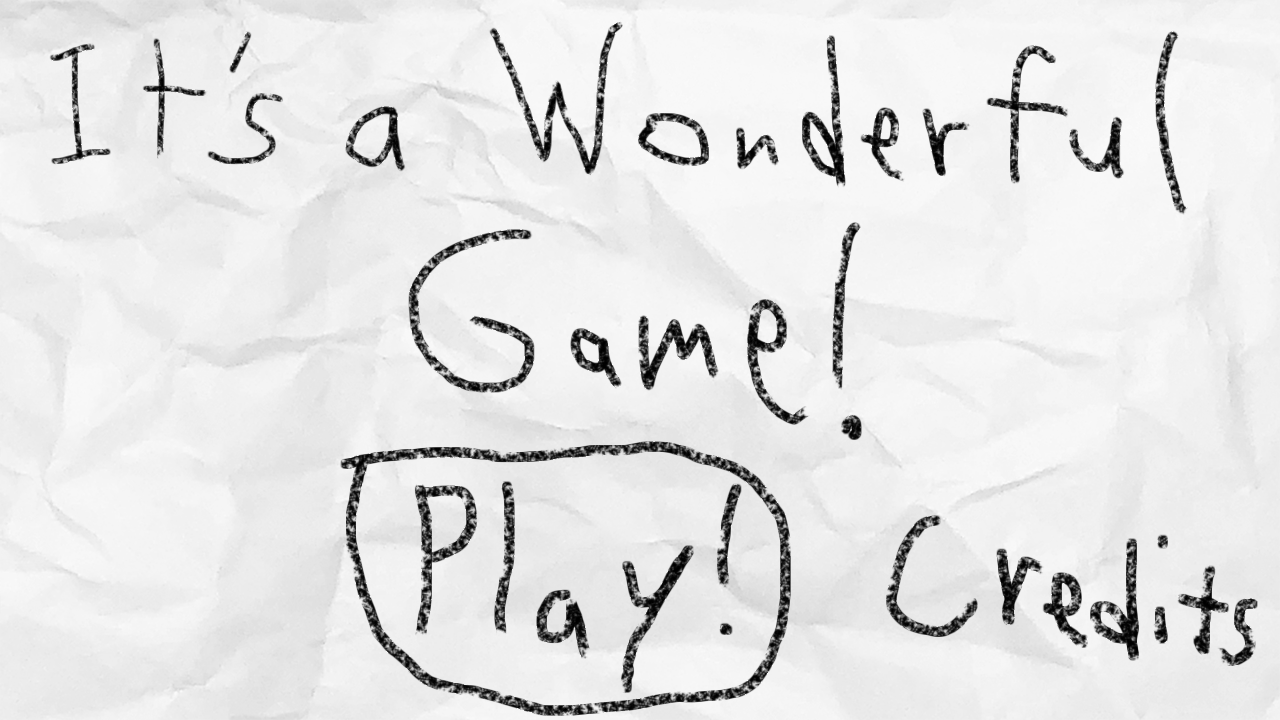 It's a Wonderful
Game!
Play! Credits